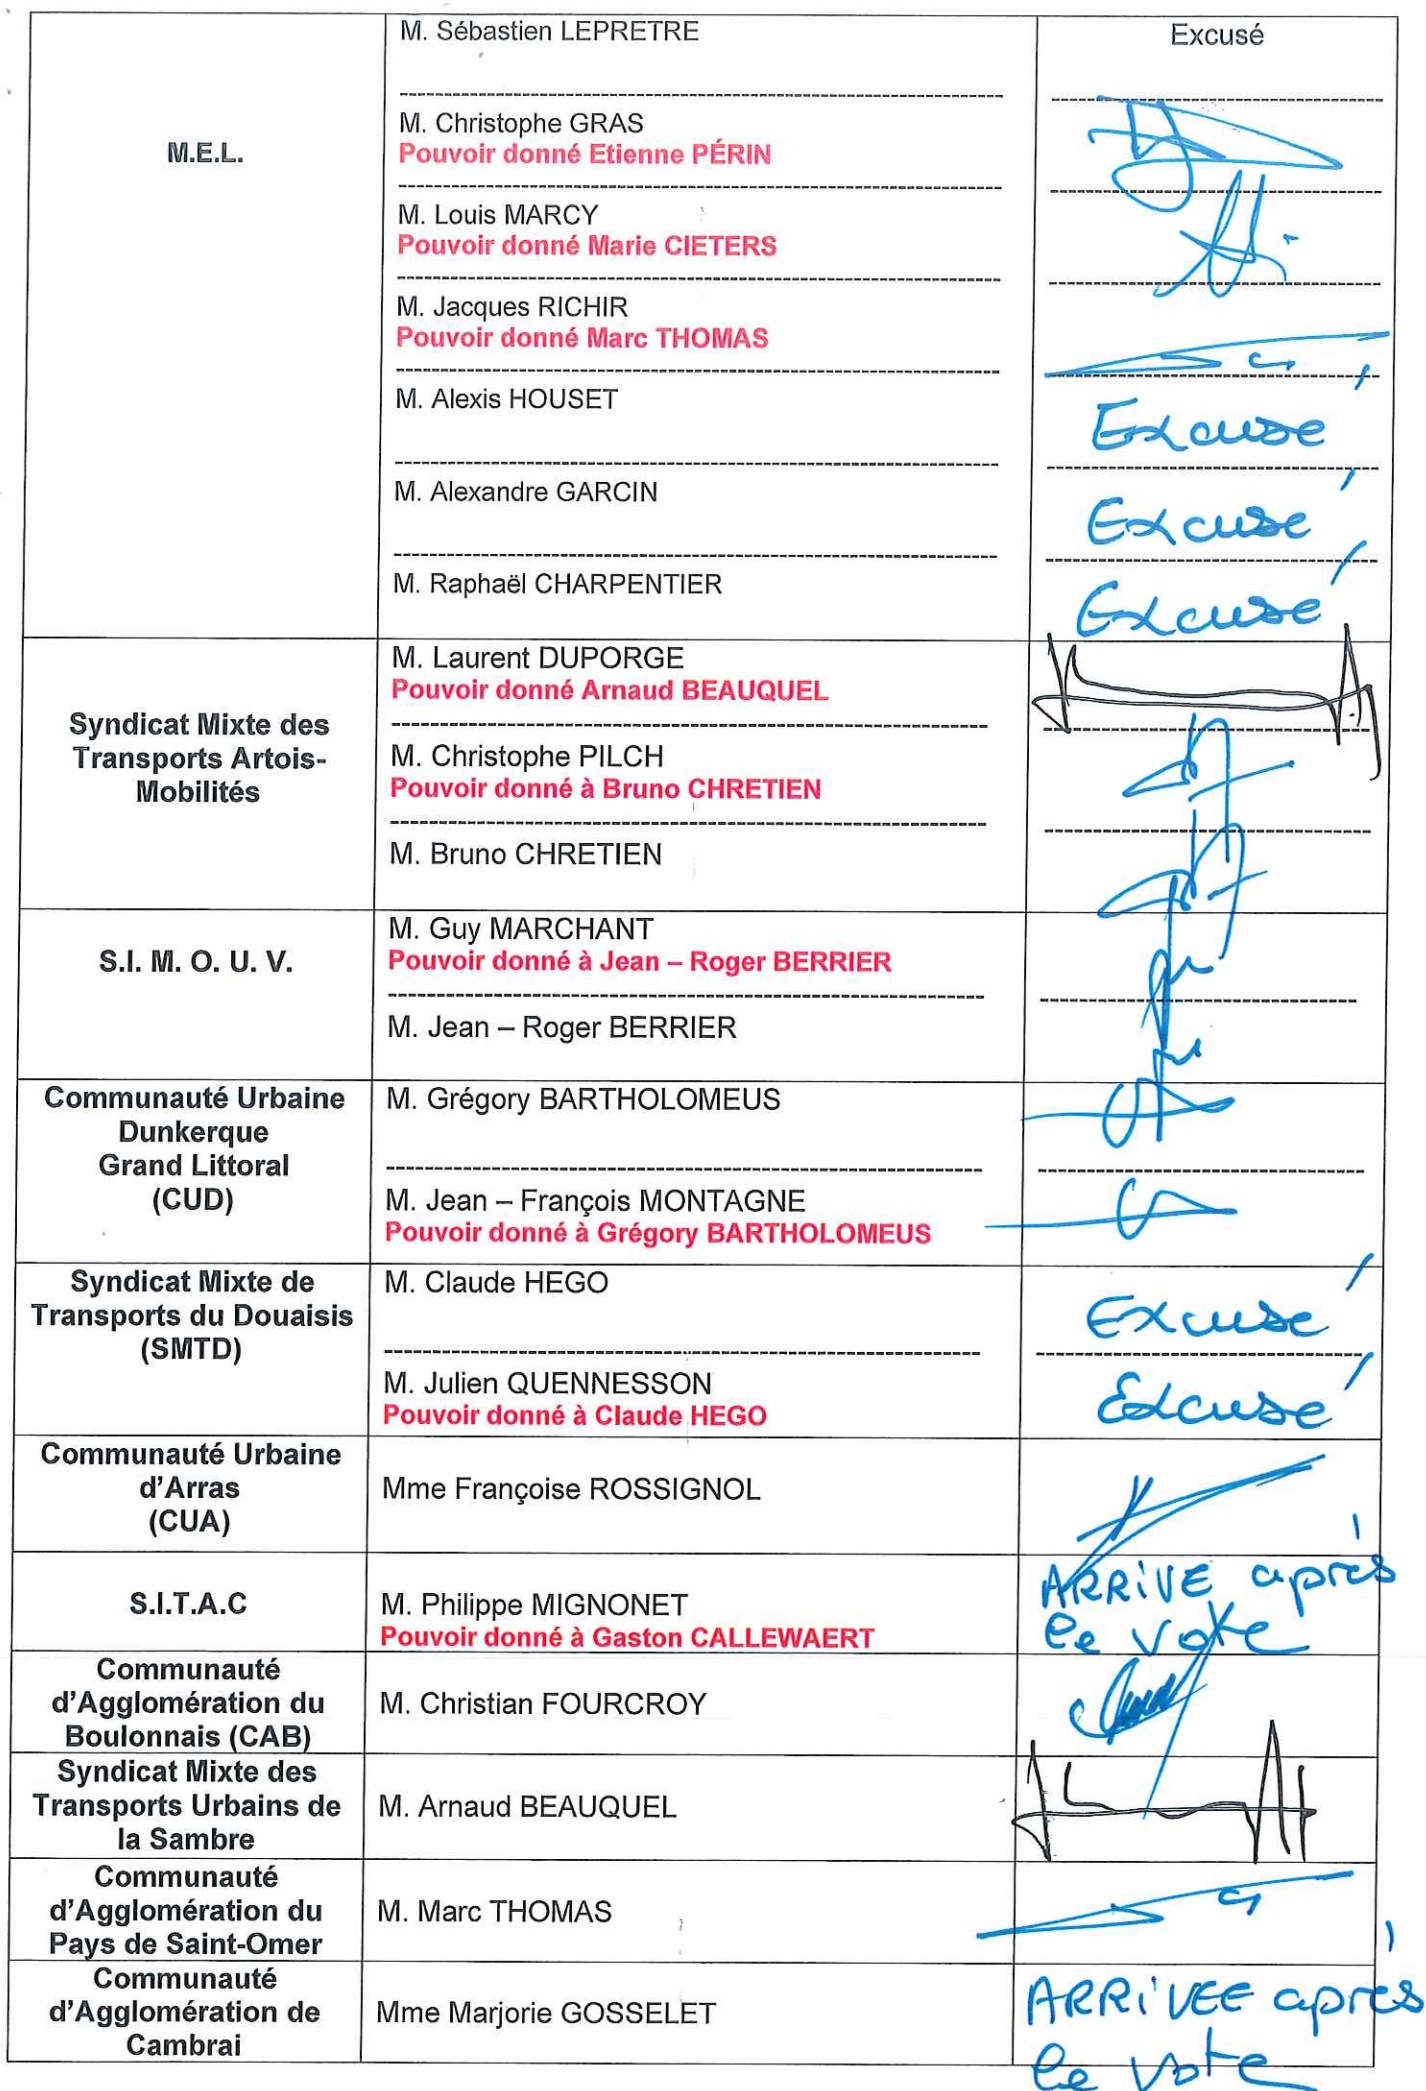 M.E.L.
M. Sébastien LEPRETRE
Excusé
M. Christophe GRAS
Pouvoir donné Etienne PÉRIN
M. Louis MARCY
Pouvoir donné Marie CIETERS
M. Jacques RICHIR
Pouvoir donné Marc THOMAS
M. Alexis HOUSET
Excusé
M. Alexandre GARCIN
Excusé
M. Raphaël CHARPENTIER
Excusé
Syndicat Mixte des
Transports Artois-
Mobilités
M. Laurent DUPORGE
Pouvoir donné Arnaud BEAUQUEL
M. Christophe PILCH
Pouvoir donné à Bruno CHRETIEN
M. Bruno CHRETIEN
S.I. M. O. U. V.
M. Guy MARCHANT
Pouvoir donné à Jean – Roger BERRIER
M. Jean – Roger BERRIER
Communauté Urbaine
Dunkerque
Grand Littoral
(CUD)
M. Grégory BARTHOLOMEUS
M. Jean – François MONTAGNE
Pouvoir donné à Grégory BARTHOLOMEUS
Syndicat Mixte de
Transports du Douaisis
(SMTD)
M. Claude HEGO
Excusé
M. Julien QUENNESSON
Pouvoir donné à Claude HEGO
Excusé
Communauté Urbaine
d'Arras
(CUA)
Mme Françoise ROSSIGNOL
S.I.T.A.C
M. Philippe MIGNONET
Pouvoir donné à Gaston CALLEWAERT
ARRIVÉ après
le vote
Communauté
d'Agglomération du
Boulonnais (CAB)
M. Christian FOURCROY
Syndicat Mixte des
Transports Urbains de
la Sambre
M. Arnaud BEAUQUEL
Communauté
d'Agglomération du
Pays de Saint-Omer
M. Marc THOMAS
Communauté
d'Agglomération de
Cambrai
Mme Marjorie GOSSELET
ARRIVÉE après
le vote